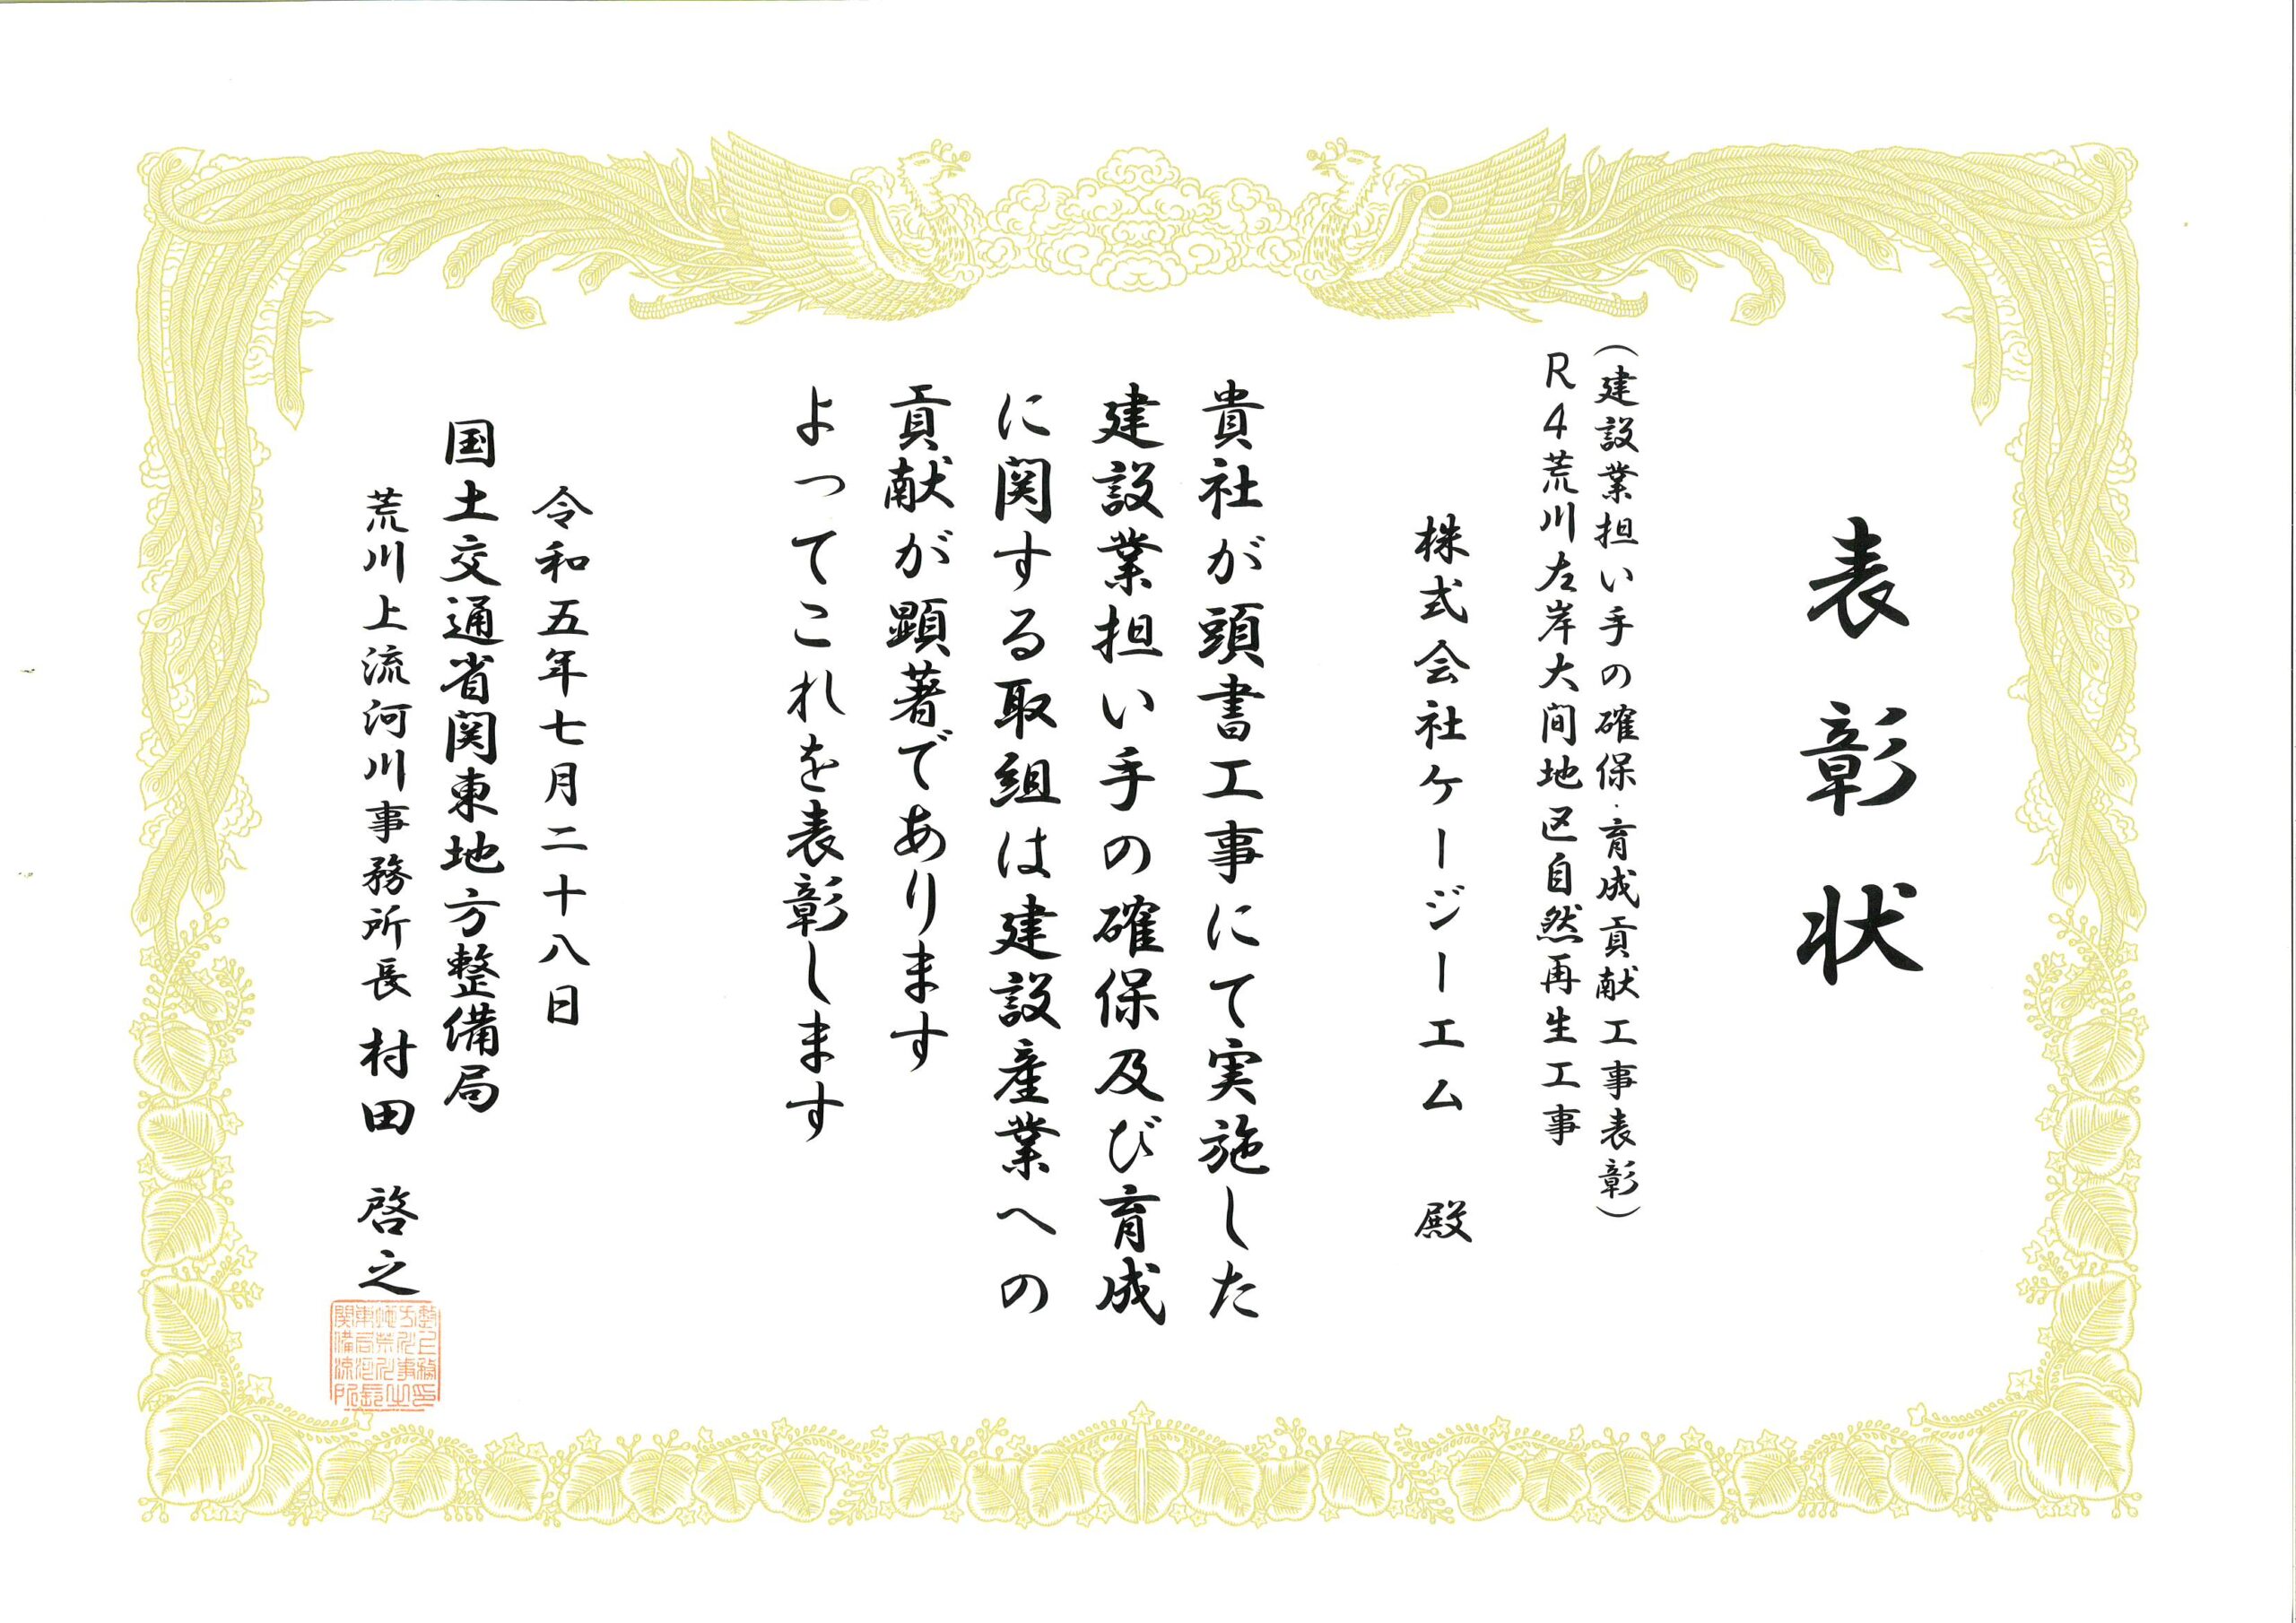 表彰状
（建設業担い手の確保・育成貢献工事表彰）
R4荒川左岸大間地区自然再生工事
株式会社ケージーエム 殿
貴社が頭書工事にて実施した
建設業担い手の確保及び育成
に関する取組は建設産業への
貢献が顕著であります
よってこれを表彰します
令和五年七月二十八日
国土交通省関東地方整備局
荒川上流河川事務所長 村田 啓之